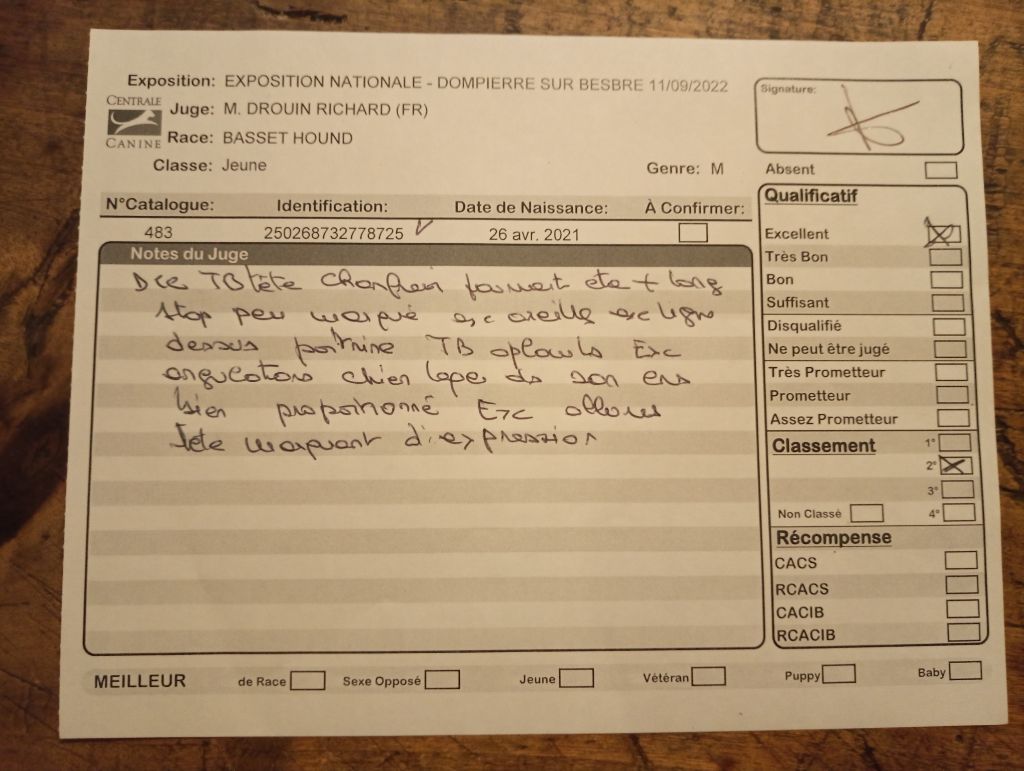 Exposition: EXPOSITION NATIONALE - DOMPIERRE SUR BESBRE 11/09/2022
CENTRALE
CANINE
Juge: M. DROUIN RICHARD (FR)
Race: BASSET HOUND
Classe: Jeune
Genre: M
Signature:
Absent
N°Catalogue: Identification: Date de Naissance: À Confirmer:
483 250268732778725 26 avr. 2021
Notes du Juge
TB tête chanfrein pourrait etre + long
Stop peu marqué exc oreilles exc ligne
dessus poitrine TB aplombs Exc
angulations chien ds son ens
bien proportionné Exc allures
Tete manquant d'expression
Qualificatif
Excellent
Très Bon
Bon
Suffisant
Disqualifié
Ne peut être jugé
Très Prometteur
Prometteur
Assez Prometteur
Classement
1°
2°
3°
Non Classé 4°
Récompense
CACS
RCACS
CACIB
RCACIB
MEILLEUR de Race Sexe Opposé Jeune Vétéran Puppy Baby